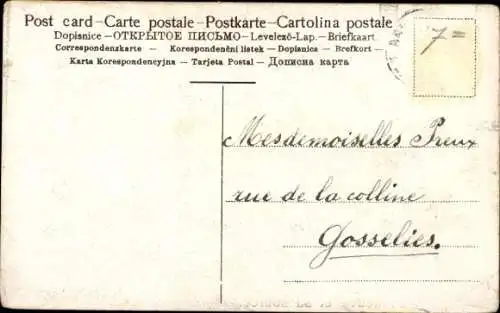 Post card – Carte postale – Postkarte – Cartolina postale
Dopisnice – ОТКРЫТОЕ ПИСЬМО – Levelező-Lap. – Briefkaart
Correspondenzkarte – Korespondenčni listek – Dopisnica – Brefkort –
Karta Korespondencyjna – Tarjeta Postal – Дописна карта
7=
Mesdemoiselles Preux
rue de la colline
Gosselies.